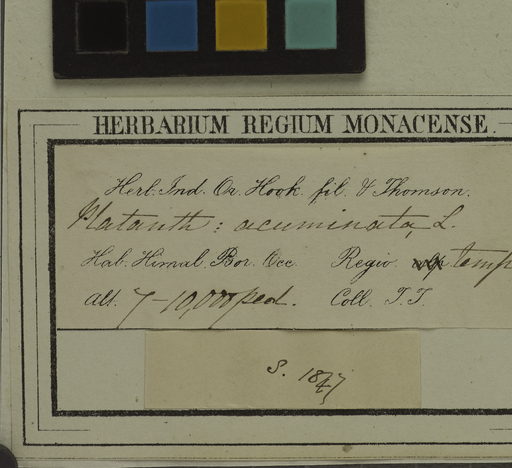 HERBARIUM REGIUM MONACENSE.
Herb. Ind. Or. Hook. fil. & Thomson.
Platanth: acuminata, L.
Hab. Himal. Bor. Occ. Regio temp
Alt. 7-10,000 ped. Coll. T.T.
S. 1847